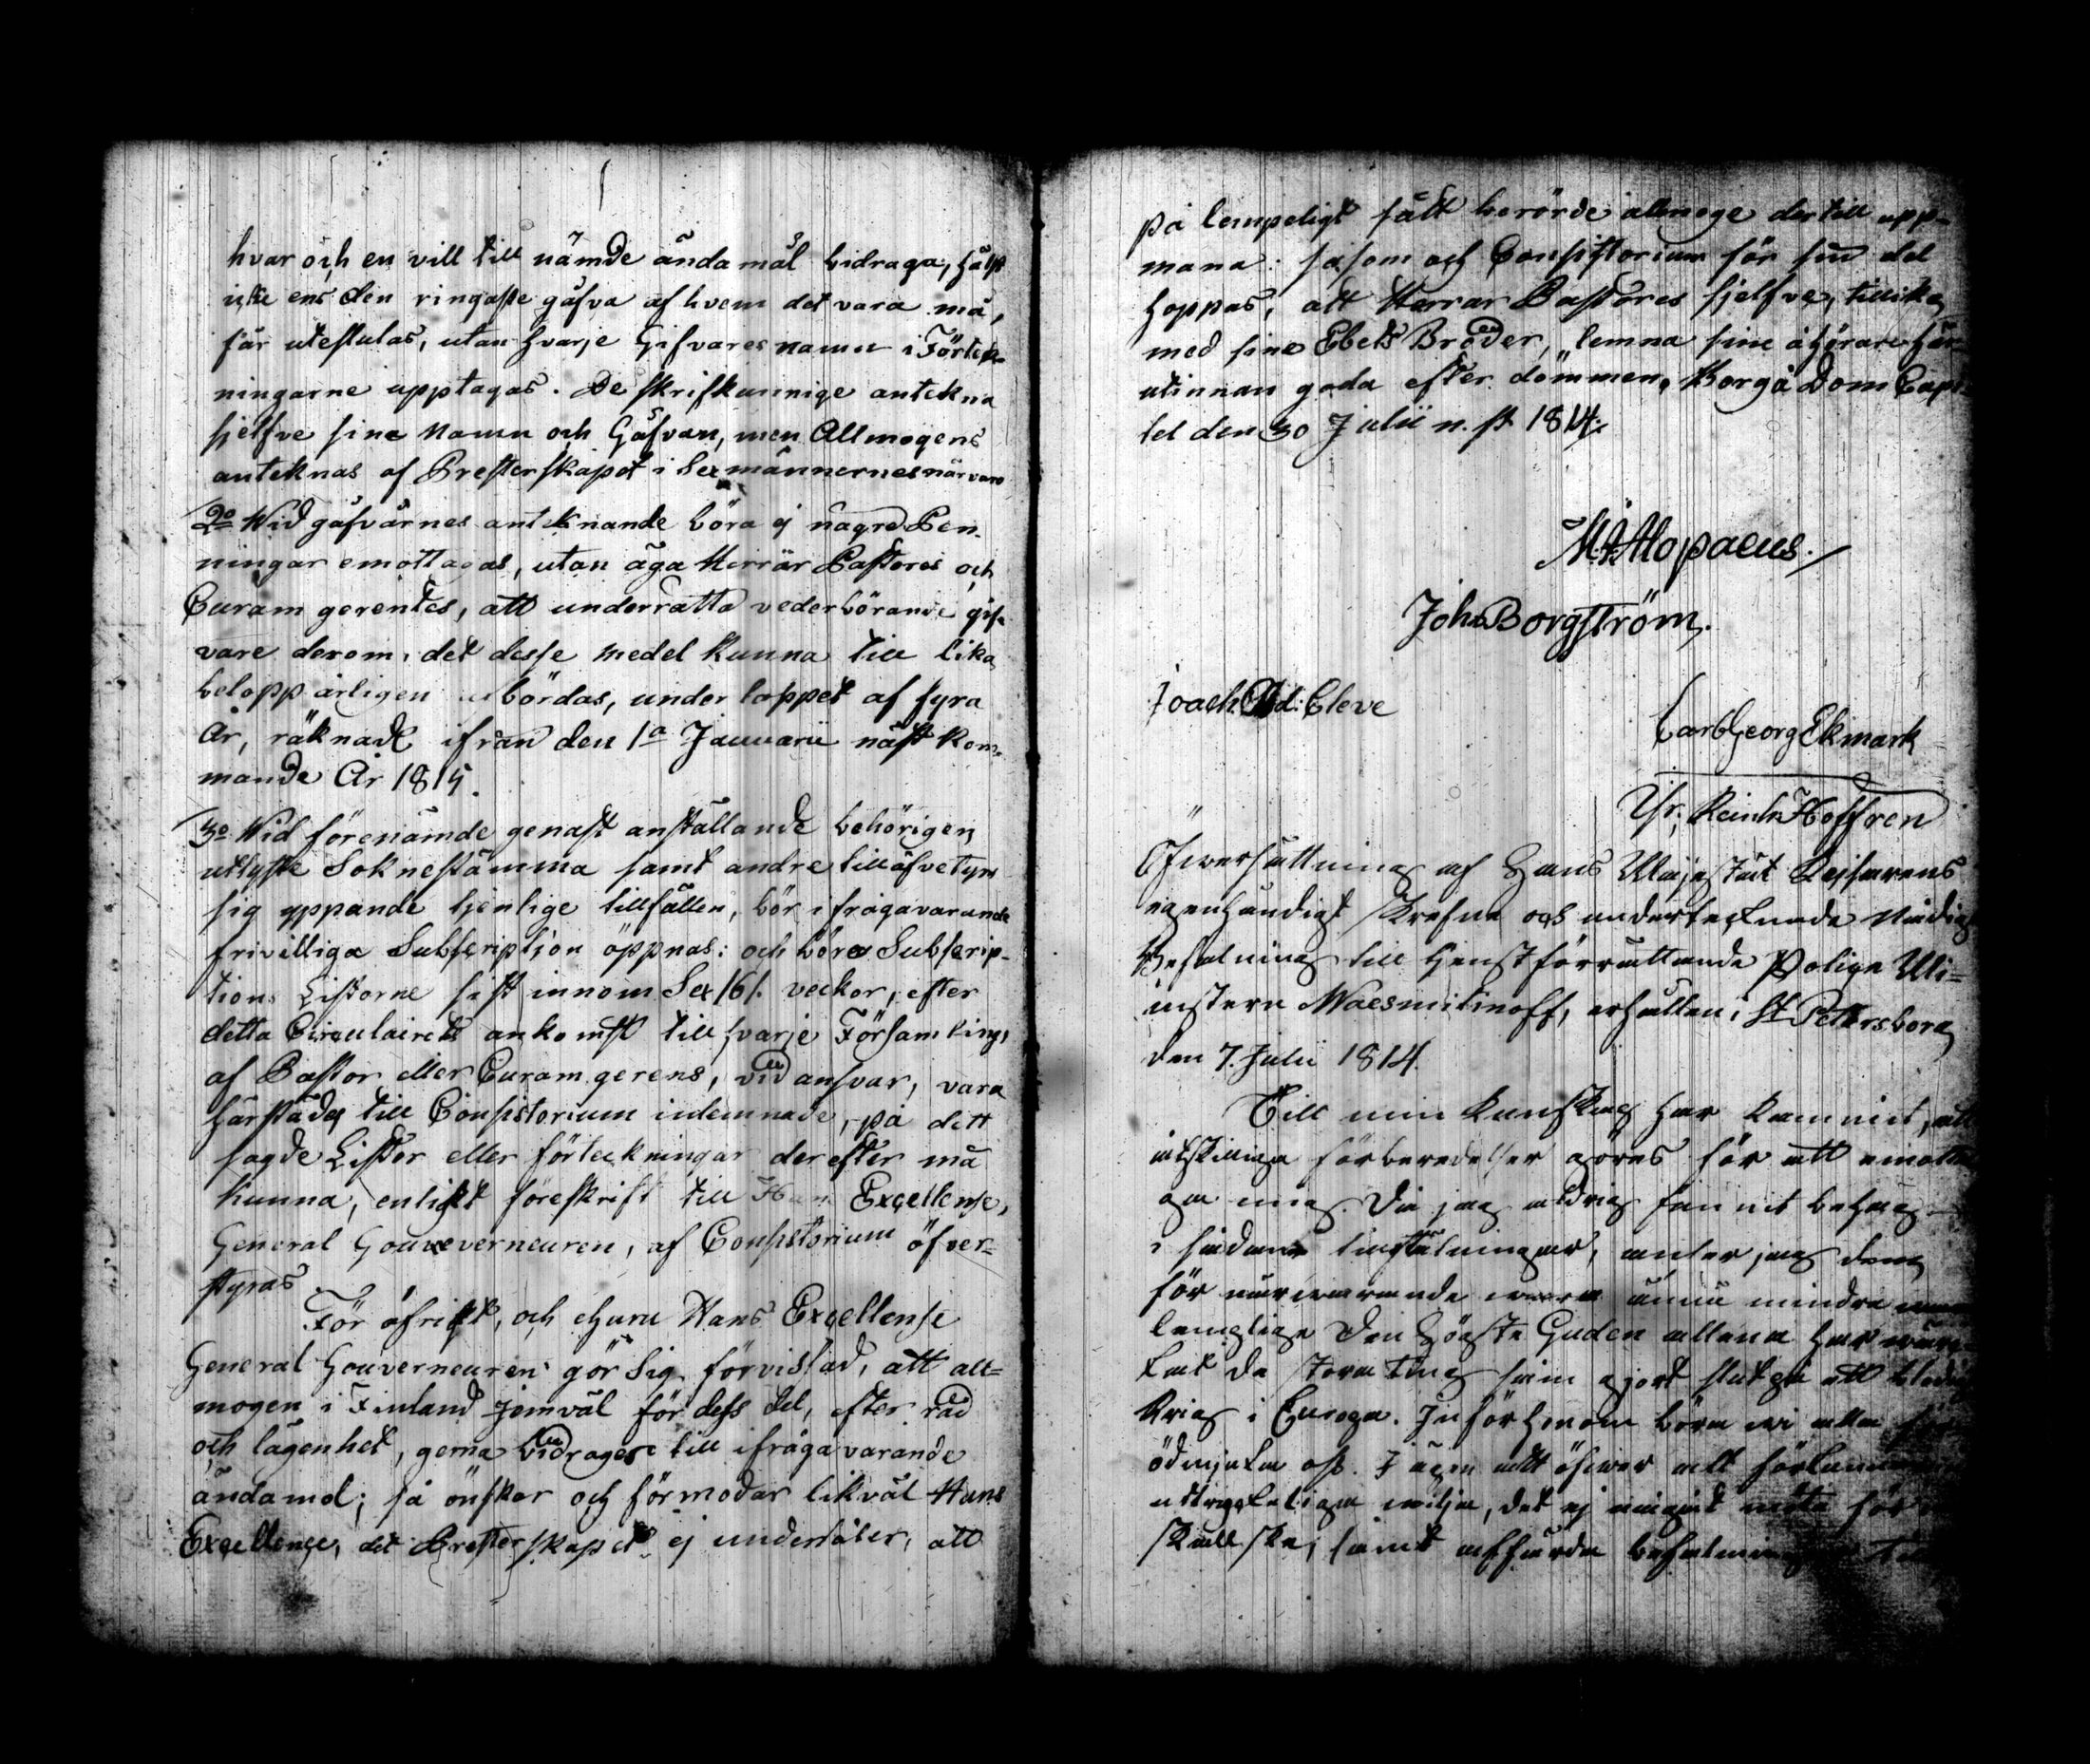 hvar och en vill till nämde ändamål bidraga, hälst
icke ens den ringaste gåfva af hvem det vara må,
får uteslutas, utan hvarje Gifvares namn i Förtek-
ningarne upptagas. De skrifkunnige antekna
sjelfve sine Namn och Gåfvan, men Allmogens
anteknas af Presterskapet i Sexmännernes närvaro
2o Wid gåfvornes anteknande böra ej någre Pen-
ningar emottagas, utan äga Herrar Pastores och
Curam gerentes, att underrätta vederbörande gif-
vare derom, det desse medel kunna till lika
belopp årligen utbördas, under loppet af fyra
År, räknade ifrån den 1a Januarii näst kom-
mande År 1815.
3o Wid förenämde genast anställande behörigen
utlyste Soknestämma samt andre till äfventyrs
sig yppande tjenlige tillfällen, bör ifrågavarande
frivilliga Subscription öppnas: och böra Subscrip-
tions Listorne sist innom Sex /6/. veckor, efter
detta Circulairets ankomst till hvarje Församling,
af Pastor eller Curam gerens, vid ansvar, vara
härstädes till Consistorium inlemnade, på dett
sagde Listor eller förteckningar derefter må
kunna, enligt föreskrift till Hans Excellense,
General Gouverneuren, af Consistorium öfver-
styras
För öfrigt, och ehuru Hans Excellense
General Gouverneuren gör Sig förvissad, att all-
mogen i Finland jemväl för dess del, efter råd
och lägenhet, gerna bidrager till ifrågavarande
ändamål; så önskar och förmodar likväl Hans
Excellence, det Presterskapet ej underlåter, att
på lempeligt sätt berörde allmoge dertill upp-
mana: såsom och Consistorium för sin del
hoppas, att Herrar Pastores sjelfve, tillika
med sine Embets Bröder, lemna sine åhörare här
utinnan goda efterdömmen. Borgå Dom Capi-
tel den 30 Julii n. st 1814.
M. Alopaeus.
Joh. Borgström.
Joach. Ad: Cleve
Carl Georg Ekmark
Reinh. Hoffren
Öfwersättning af Hans Majestät Kejsarens
egenhändigt skrefne och undertecknade Nådiga
Befalning till tjenstförrättande Polise Mi-
nistern Waesmitinoff, erhållen i St Petersborg
den 7. Julii 1814.
Till min kunskap har kommit, att
åtskilliga förberedelser göras för att emotta
ga mig. Då jag aldrig funnit behag
i sådana tillställningar, anser jag dem
för närwarande wara ännu mindre
lemplige Den Högste Guden allena har wärk-
kat de stora ting som gjort slut på ett blodigt
Krig i Europa. Inför Honom böra wi alla
ödmjuka oss. I ägen att öfwer allt förkunna min
uttryckeliga wilja, det ej något möte för
skall ske; samt affärda befalningar